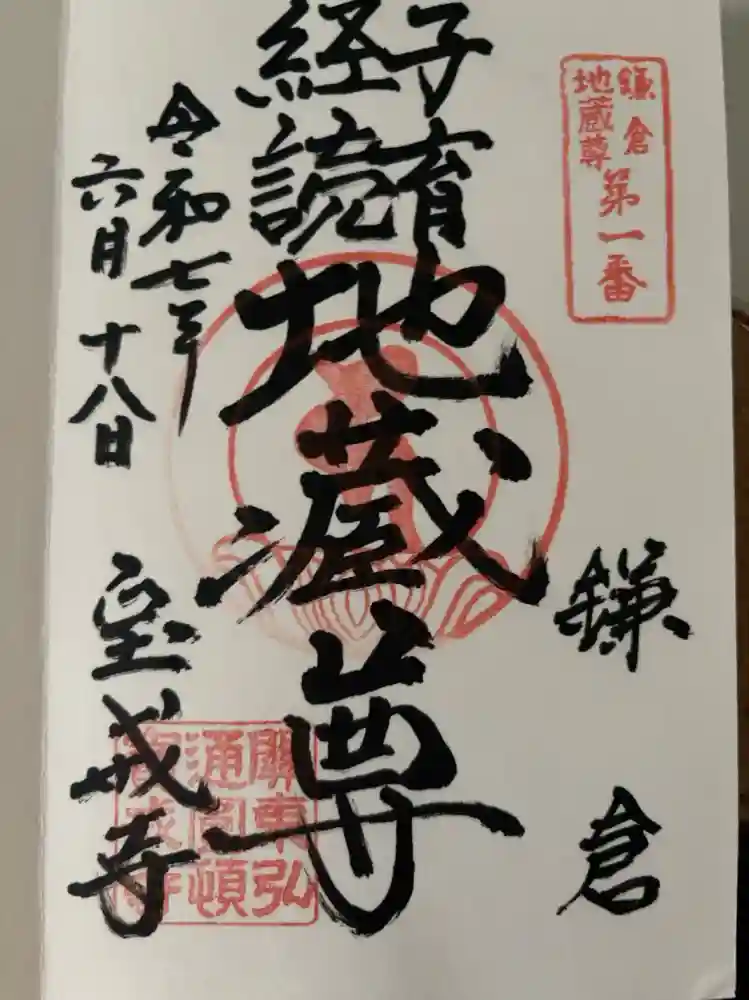 鎌倉
地蔵尊
第一番
鎌倉
子育
経読
地蔵尊
令和七年
六月十八日
宝戒寺
關東弘
通圓頓
寶戒寺